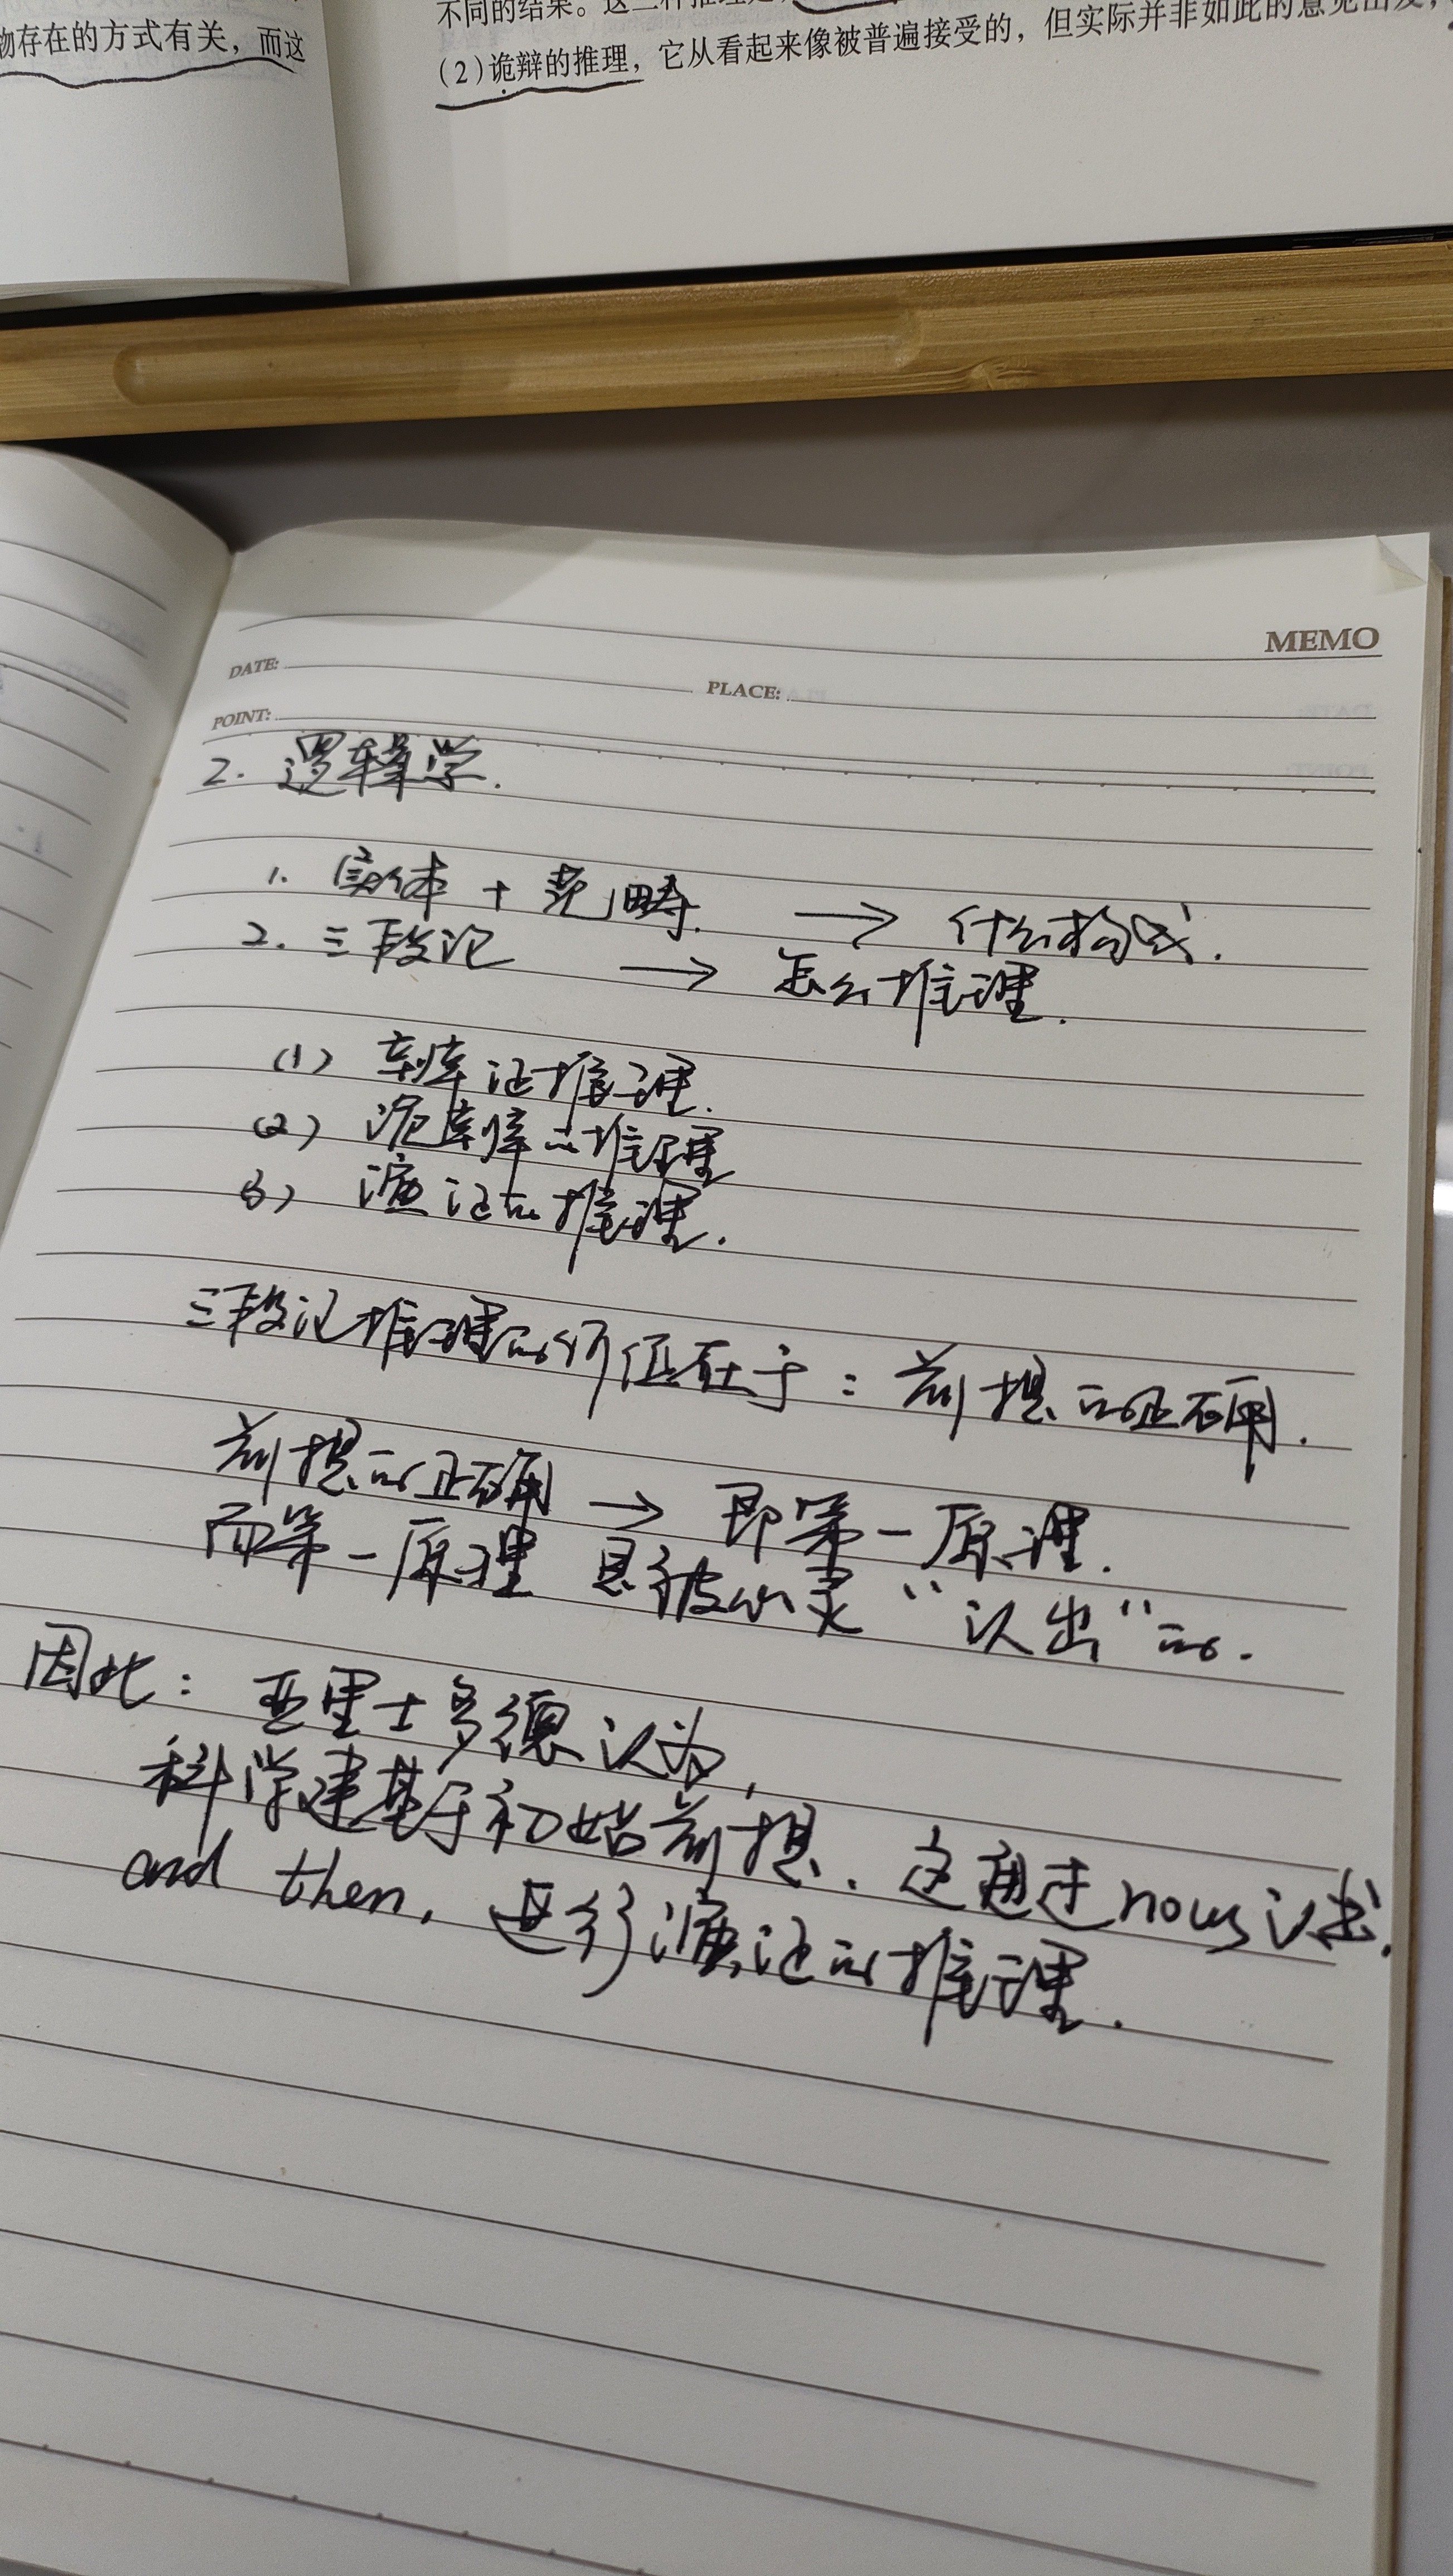 物存在的方式有关，而这
不同的结果。这
(2)诡辩的推理，它从看起来像被普遍接受的，但实际并非如此的意见出发，
MEMO
DATE:
PLACE:
POINT:
2. 逻辑学.
1. 实体 + 范畴. → 什么构成.
2. 三段论 → 怎么推理.
(1) 辩证推理.
(2) 诡辩的推理
(3) 演证的推理.
三段论推理的价值在于：前提的正确.
前提的正确 → 即第一原理.
而第一原理 是被心灵“认出”的.
因此：亚里士多德认为，
科学建基于初始前提. 这通过nous认出.
and then, 进行演证的推理.